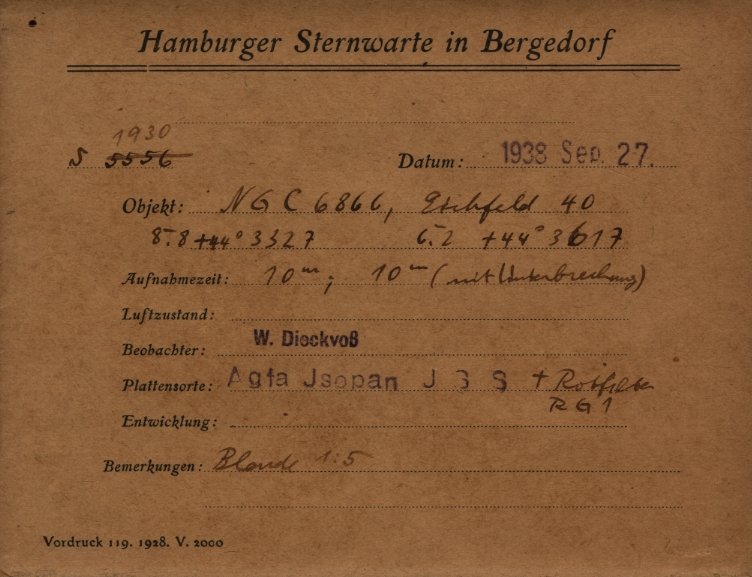 Hamburger Sternwarte in Bergedorf
1930
S 5556
Datum: 1938 Sep. 27.
Objekt: NGC 6866, Eichfeld 40
8.8 +44° 3327 6.2 +44° 3617
Aufnahmezeit: 10m; 10m (mit Unterbrechung)
Luftzustand:
Beobachter: W. Dieckvoß
Plattensorte: Agfa Jsopan J S S + Rotfilter
RG1
Entwicklung:
Bemerkungen: Blende 1:5
Vordruck 119. 1928. V. 2000